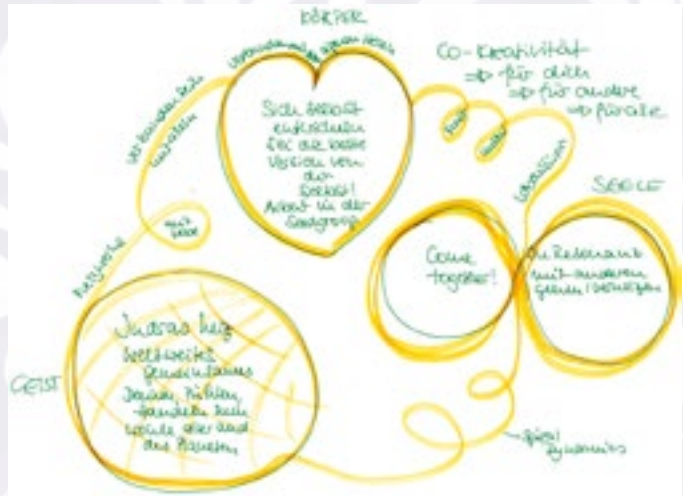 KÖRPER
Co-Kreativität
⇒ für dich
⇒ für andere
⇒ für alle
Sich selbst
entwickeln
Sei die beste
Version von
dir
selbst!
Arbeit in der
Seedgroup
SEELE
Come
together!
In Resonanz
mit anderen
gehen
GEIST
Netzwerke
Indras Netz
Weltweites
gemeinsames
Denken, Fühlen,
Handeln zum
Wohle aller und
des Planeten
Spiral
Dynamics